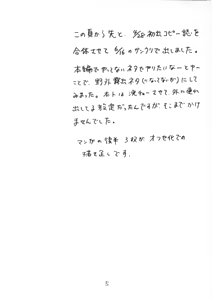 この頁から先と 8/20 初出コピー誌を
合体させて 8/16 のサンクリで出しました。
本編でやってないネタでやりたいなーとゆー
ことで 野外露出ネタ(になってないか)にして
みました。ホントは 洗わせて 外に連れ
出してる設定だったんですが そこまでかけ
ませんでした。
マンガの後半 3枚が オフセ化での
描き足しです。
5